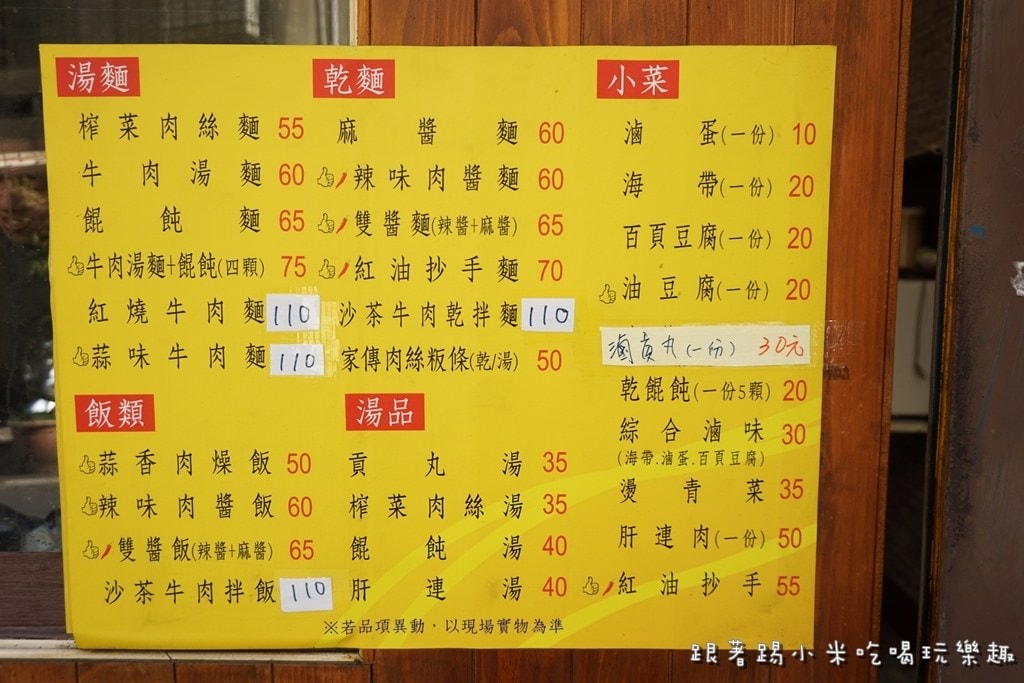 湯麵
榨菜肉絲麵 55
牛肉湯麵 60
餛飩麵 65
牛肉湯麵+餛飩(四顆) 75
紅燒牛肉麵 110
蒜味牛肉麵 110
飯類
蒜香肉燥飯 50
辣味肉醬飯 60
雙醬飯(辣醬+麻醬) 65
沙茶牛肉拌飯 110
乾麵
麻醬麵 60
辣味肉醬麵 60
雙醬麵(辣醬+麻醬) 65
紅油抄手麵 70
沙茶牛肉乾拌麵 110
家傳肉絲粄條(乾/湯) 50
湯品
貢丸湯 35
榨菜肉絲湯 35
餛飩湯 40
肝連湯 40
小菜
滷蛋(一份) 10
海帶(一份) 20
百頁豆腐(一份) 20
油豆腐(一份) 20
滷貢丸(一份) 30元
乾餛飩(一份5顆) 20
綜合滷味 30
(海帶.滷蛋.百頁豆腐)
燙青菜 35
肝連肉(一份) 50
紅油抄手 55
※若品項異動，以現場實物為準
跟著踢小米吃喝玩樂趣